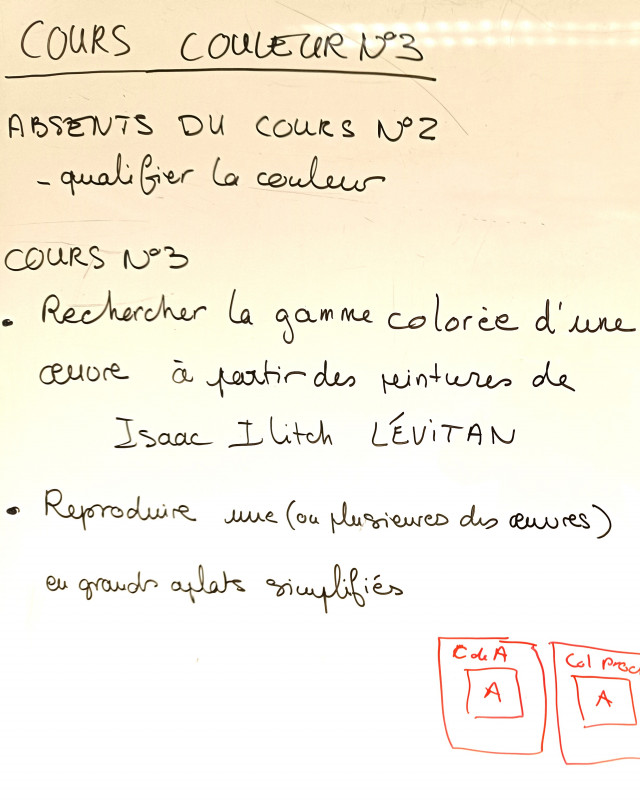 COURS COULEUR N°3
ABSENTS DU COURS N°2
- qualifier la couleur
COURS N°3
• Rechercher la gamme colorée d'une
œuvre à partir des peintures de
Isaac Ilitch LÉVITAN
• Reproduire une (ou plusieures des œuvres)
en grands aplats simplifiés
C de A
A
Col proc
A